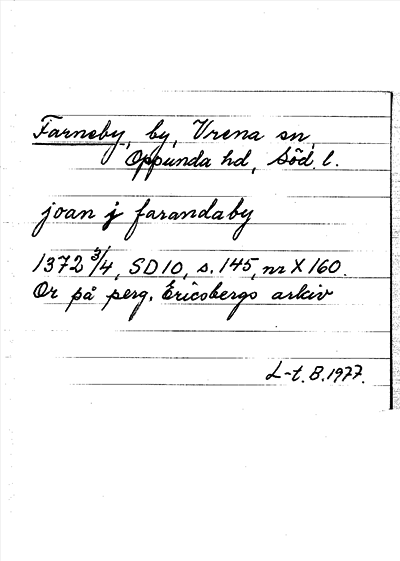 Farneby, by, Vrena sn,
Oppunda hd, Söd. l.
joan j farandaby
1372 3/4, SD10, s. 145, nr X 160.
Or på perg. Ericsbergs arkiv
L-t. B. 1977.